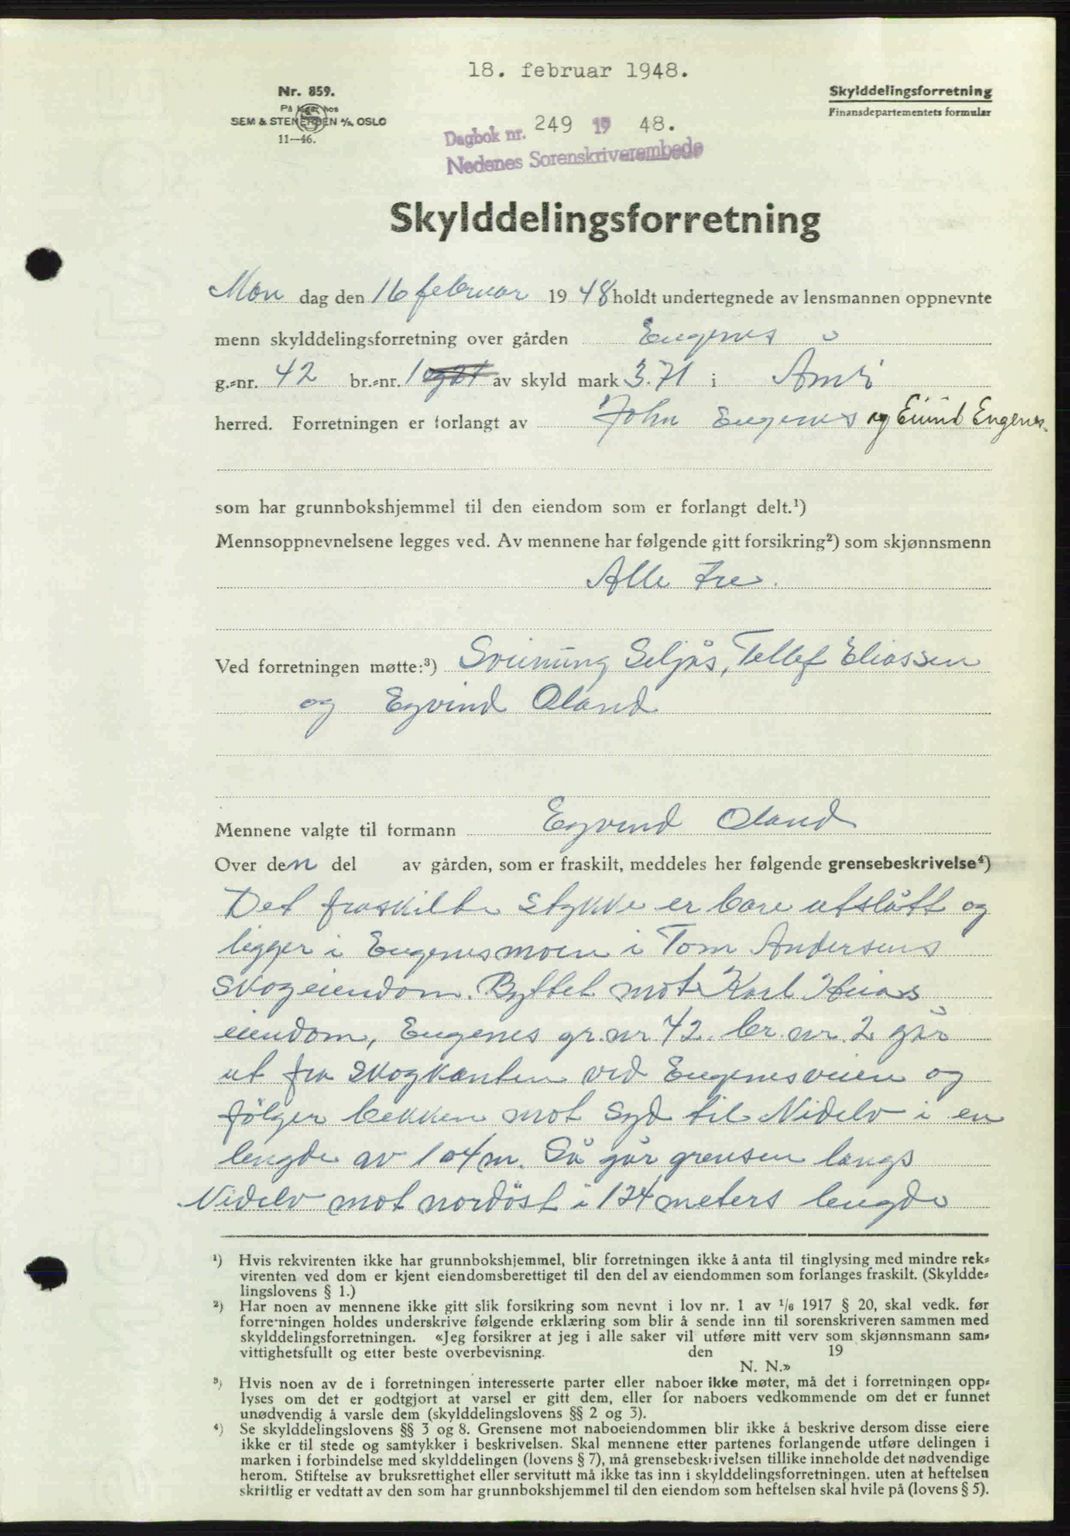 18. februar 1948.
Nr. 859.
På lager hos
SEM & STENERSEN A/S, OSLO
11—46.
Skylddelingsforretning
Finansdepartementets formular
Dagbok nr. 249 19 48.
Nedenes Sorenskriverembede
Skylddelingsforretning
Mon dag den 16 februar 1948 holdt undertegnede av lensmannen oppnevnte
menn skylddelingsforretning over gården Engenes
g.-nr. 42 br.-nr. 1 av skyld mark 3.71 i Åmli
herred. Forretningen er forlangt av John Engenes og Eivind Engenes.
som har grunnbokshjemmel til den eiendom som er forlangt delt.¹)
Mennsoppnevnelsene legges ved. Av mennene har følgende gitt forsikring²) som skjønnsmenn
Alle tre.
Ved forretningen møtte:³) Sveinung Seljås, Tellef Eliassen
og Eyvind Oland
Mennene valgte til formann Eyvind Oland
Over den del av gården, som er fraskilt, meddeles her følgende grensebeskrivelse⁴)
Det fraskilte stykke er bare utslått og
ligger i Engenesmoen i Tom Andersens
skogeiendom. Byttet mot Karl
eiendom, Engenes gr. nr. 42. br. nr. 2 går
ut fra skogkanten ved Engenesveien og
følger bekken mot syd til Nidelv i en
lengde av 104 m. Så går grensen langs
Nidelv mot nordöst i 124 meters lengde
¹) Hvis rekvirenten ikke har grunnbokshjemmel, blir forretningen ikke å anta til tinglysing med mindre rek-
virenten ved dom er kjent eiendomsberettiget til den del av eiendommen som forlanges fraskilt. (Skyldde-
lingslovens § 1.)
²) Har noen av mennene ikke gitt slik forsikring som nevnt i lov nr. 1 av 1/6 1917 § 20, skal vedk. før
forretningen holdes underskrive følgende erklæring som blir å sende inn til sorenskriveren sammen med
skylddelingsforretningen. «Jeg forsikrer at jeg i alle saker vil utføre mitt verv som skjønnsmann sam-
vittighetsfullt og etter beste overbevisning. den 19
N. N.»
³) Hvis noen av de i forretningen interesserte parter eller naboer ikke møter, må det i forretningen opp-
lyses om det er godtgjort at varsel er gitt dem, eller for naboers vedkommende om det er funnet
unødvendig å varsle dem (skylddelingslovens §§ 2 og 3).
⁴) Se skylddelingslovens §§ 3 og 8. Grensene mot naboeiendommen blir ikke å beskrive dersom disse eiere
ikke er til stede og samtykker i beskrivelsen. Skal mennene etter partenes forlangende utføre delingen i
marken i forbindelse med skylddelingen (lovens § 7), må grensebeskrivelsen tillike inneholde det nødvendige
herom. Stiftelse av bruksrettighet eller servitutt må ikke tas inn i skylddelingsforretningen, uten at heftelsen
skriftlig er vedtatt av den som har grunnbokshjemmel til den eiendom som heftelsen skal hvile på (lovens § 5).